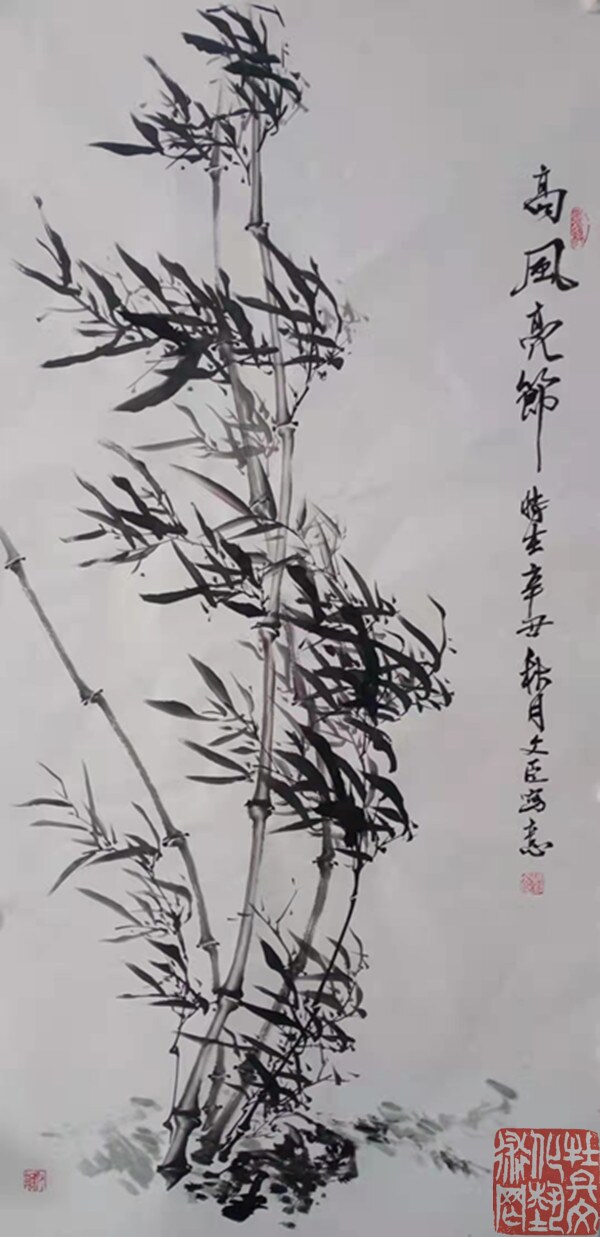 高風亮節 時在辛丑秋月文臣寫意